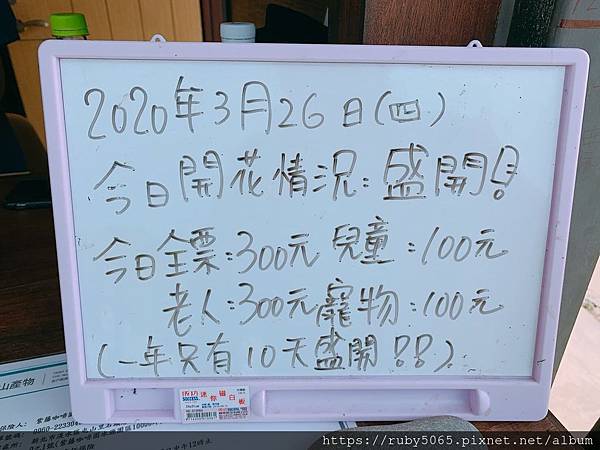 2020年3月26日(四)
今日開花情況:盛開!
今日全票:300元 兒童:100元
老人:300元 寵物:100元
(一年只有10天盛開!!)
成功 迷你磁白板
SUCCESS
山產物
紫藤咖啡園
0960-22330
https://ruby5065.pixnet.net/album